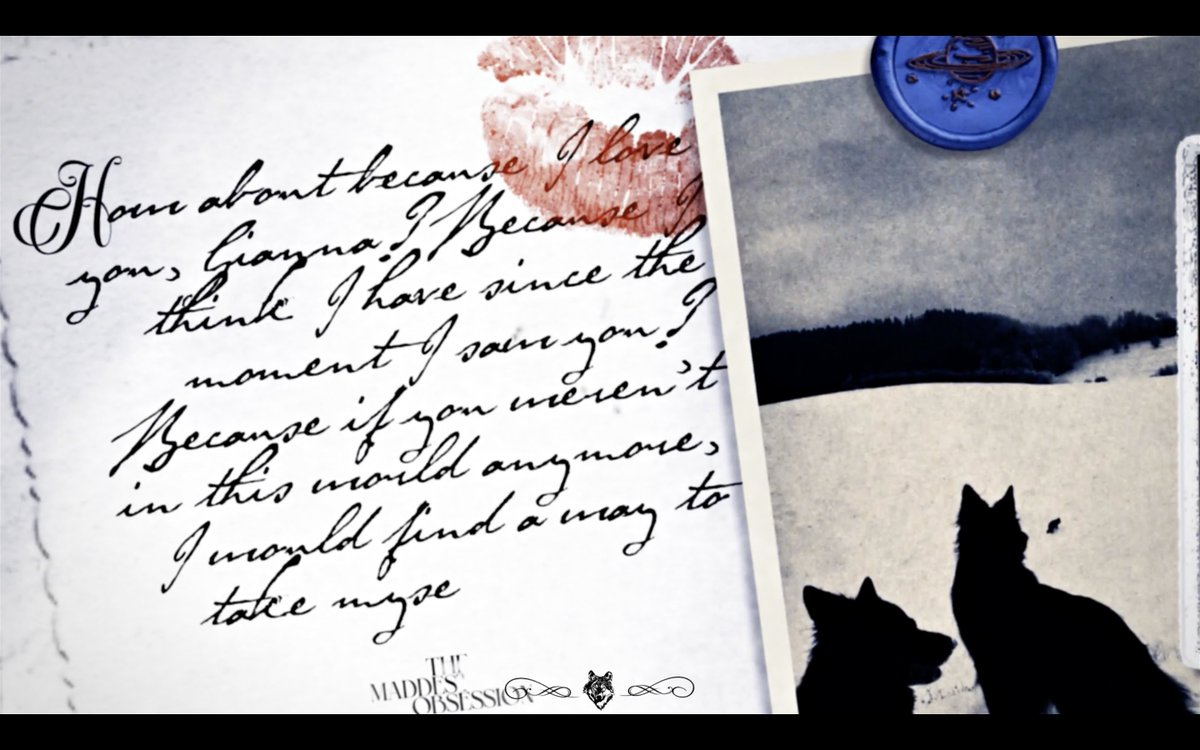 How about because I love
you, Gianna? Because I
think I have since the
moment I saw you?
Because if you weren't
in this world anymore,
I would find a way to
take myse
THE
MADDEST
OBSESSION